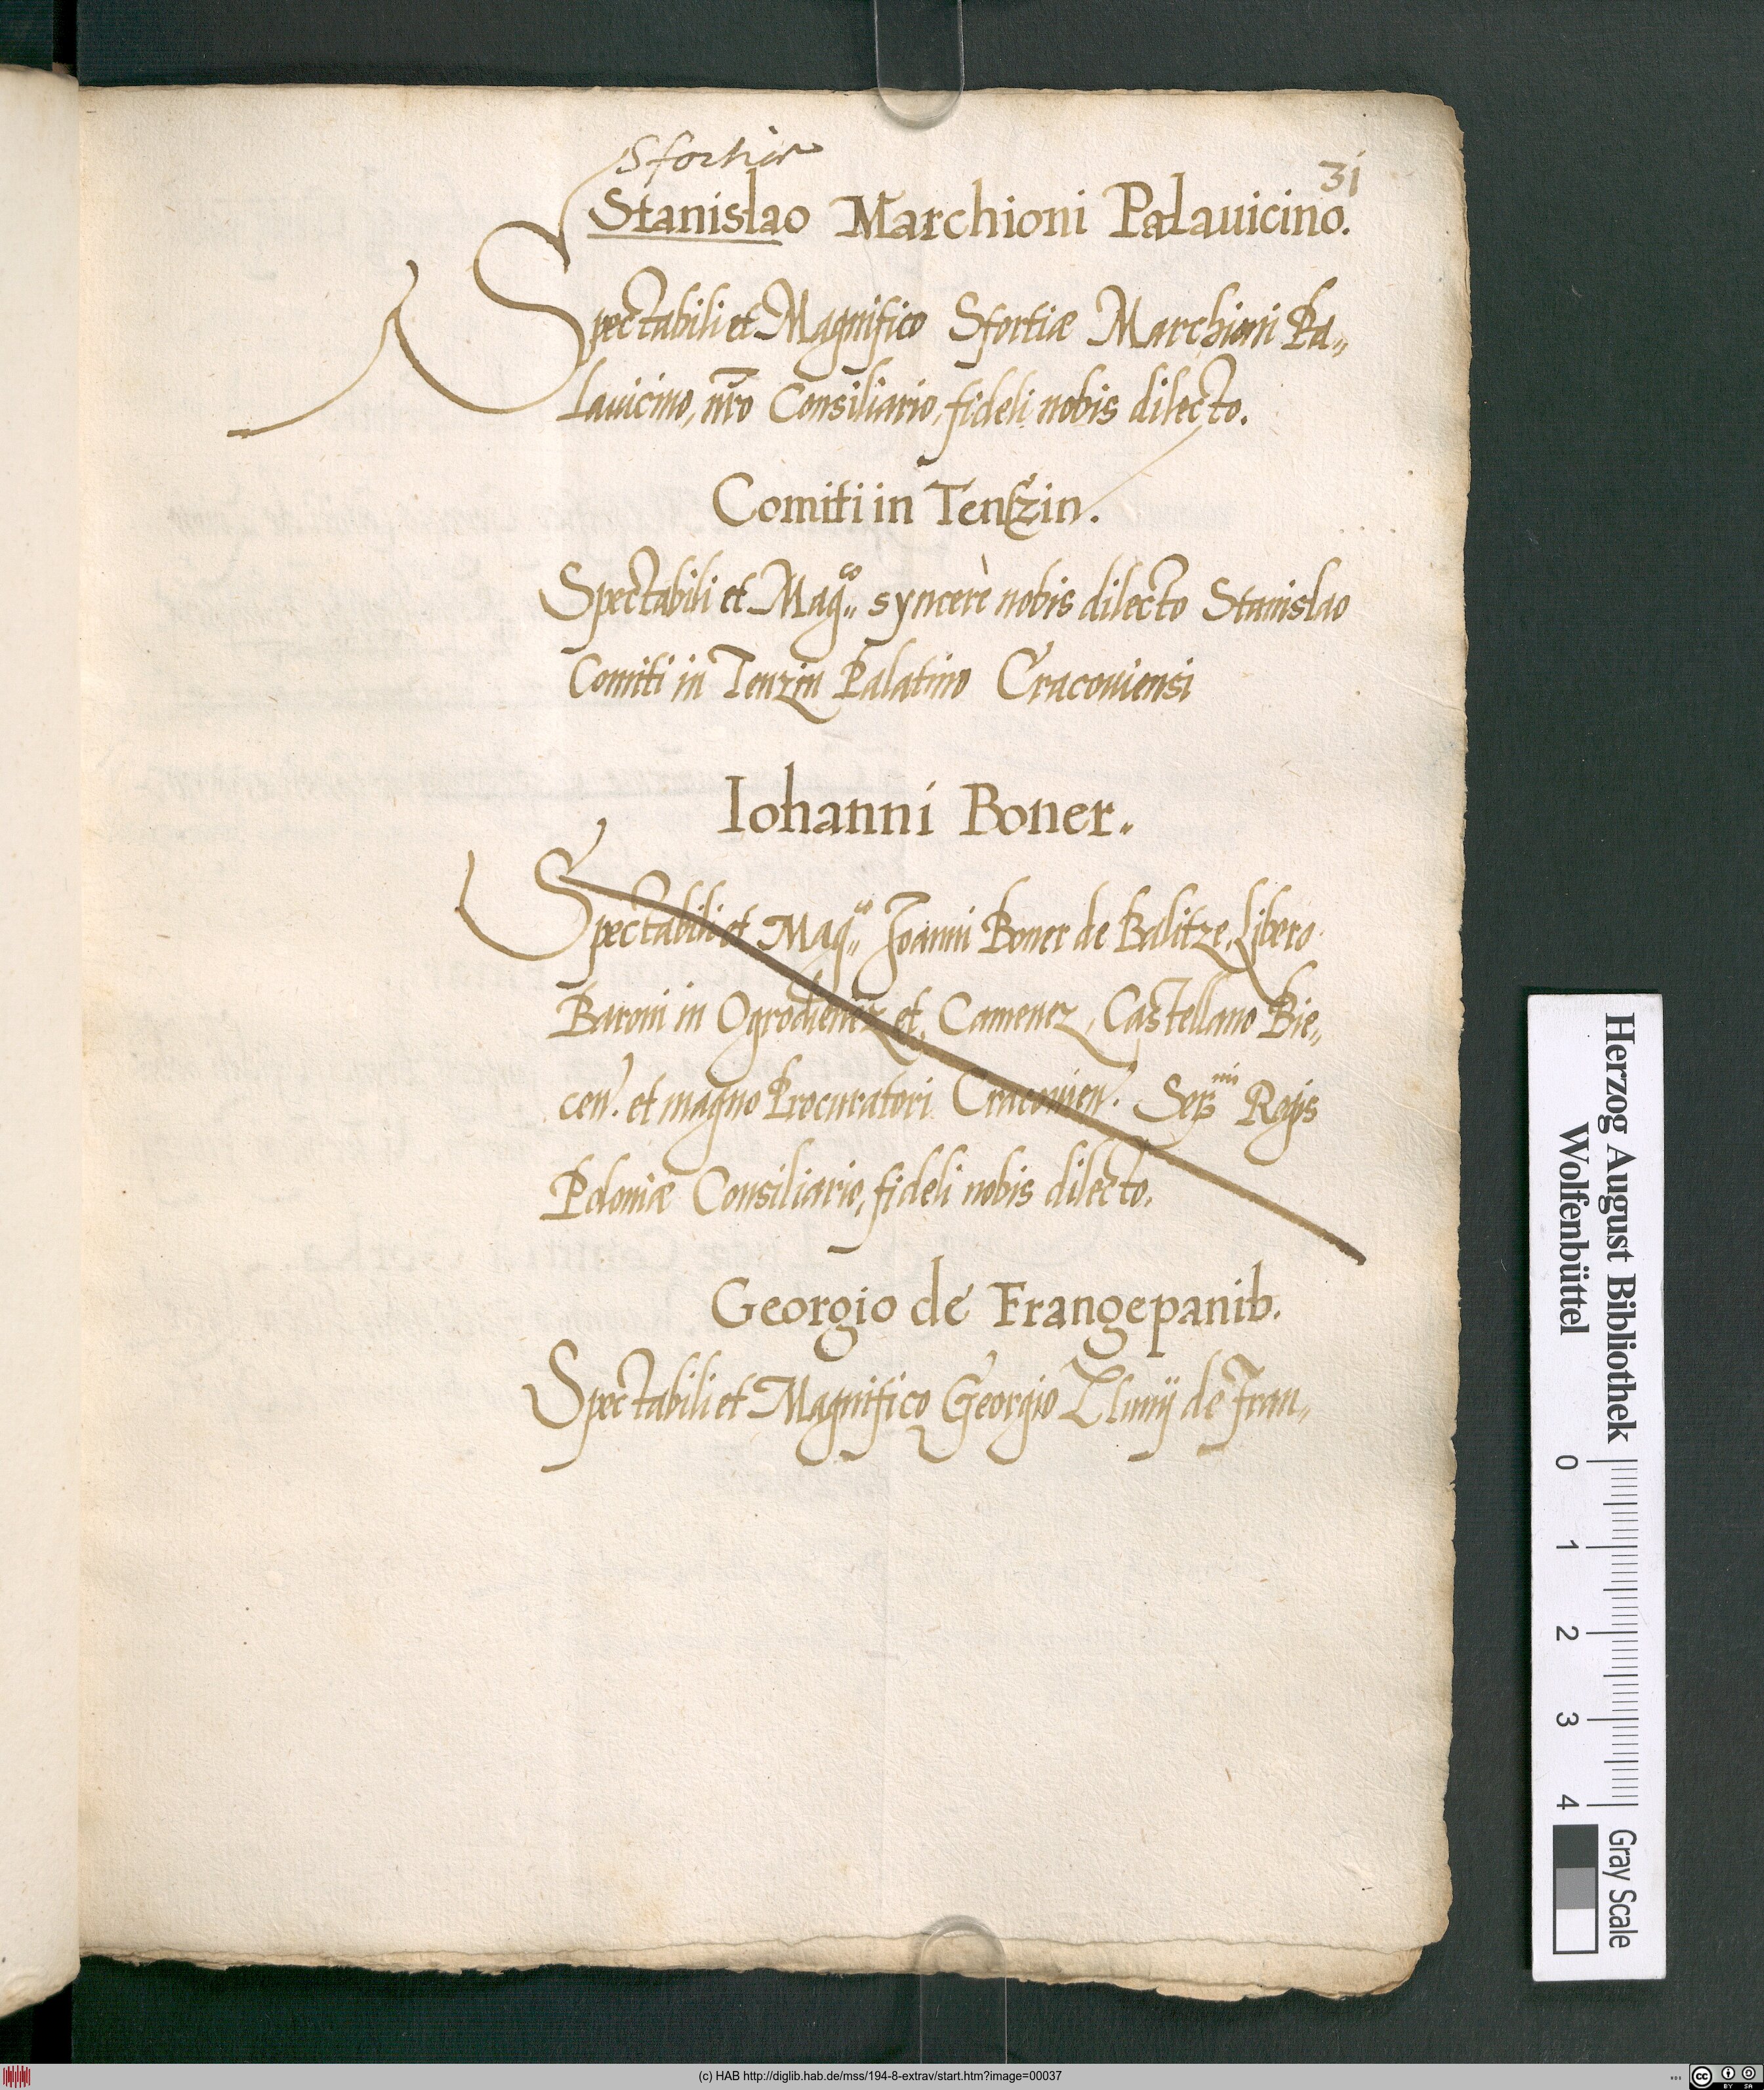 Sfortiæ
31
Stanislao Marchioni Palauicino.
Spectabili et Magnifico Sfortiæ Marchioni Pa„
lauicino, nr̃o Consiliario, fideli nobis dilecto.
Comiti in Tentzin.
Spectabili et Mag„co syncerè nobis dilecto Stanislao
Comiti in Tenzin Palatino Cracouiensi
Iohanni Boner.
Spectabili et Mag„co Joanni Boner de Balitze, Libero
Baroni in Ogrodienez et Camenez, Castellano Bie„
cen. et magno Procuratori Cracouien. Sermi Regis
Poloniæ Consiliario, fideli nobis dilecto.
Georgio de Frangepanib.
Spectabili et Magnifico Georgio de Fran„
Herzog August Bibliothek
Wolfenbüttel
0 1 2 3 4
Gray Scale
(c) HAB http://diglib.hab.de/mss/194-8-extrav/start.htm?image=00037
cc BY SA